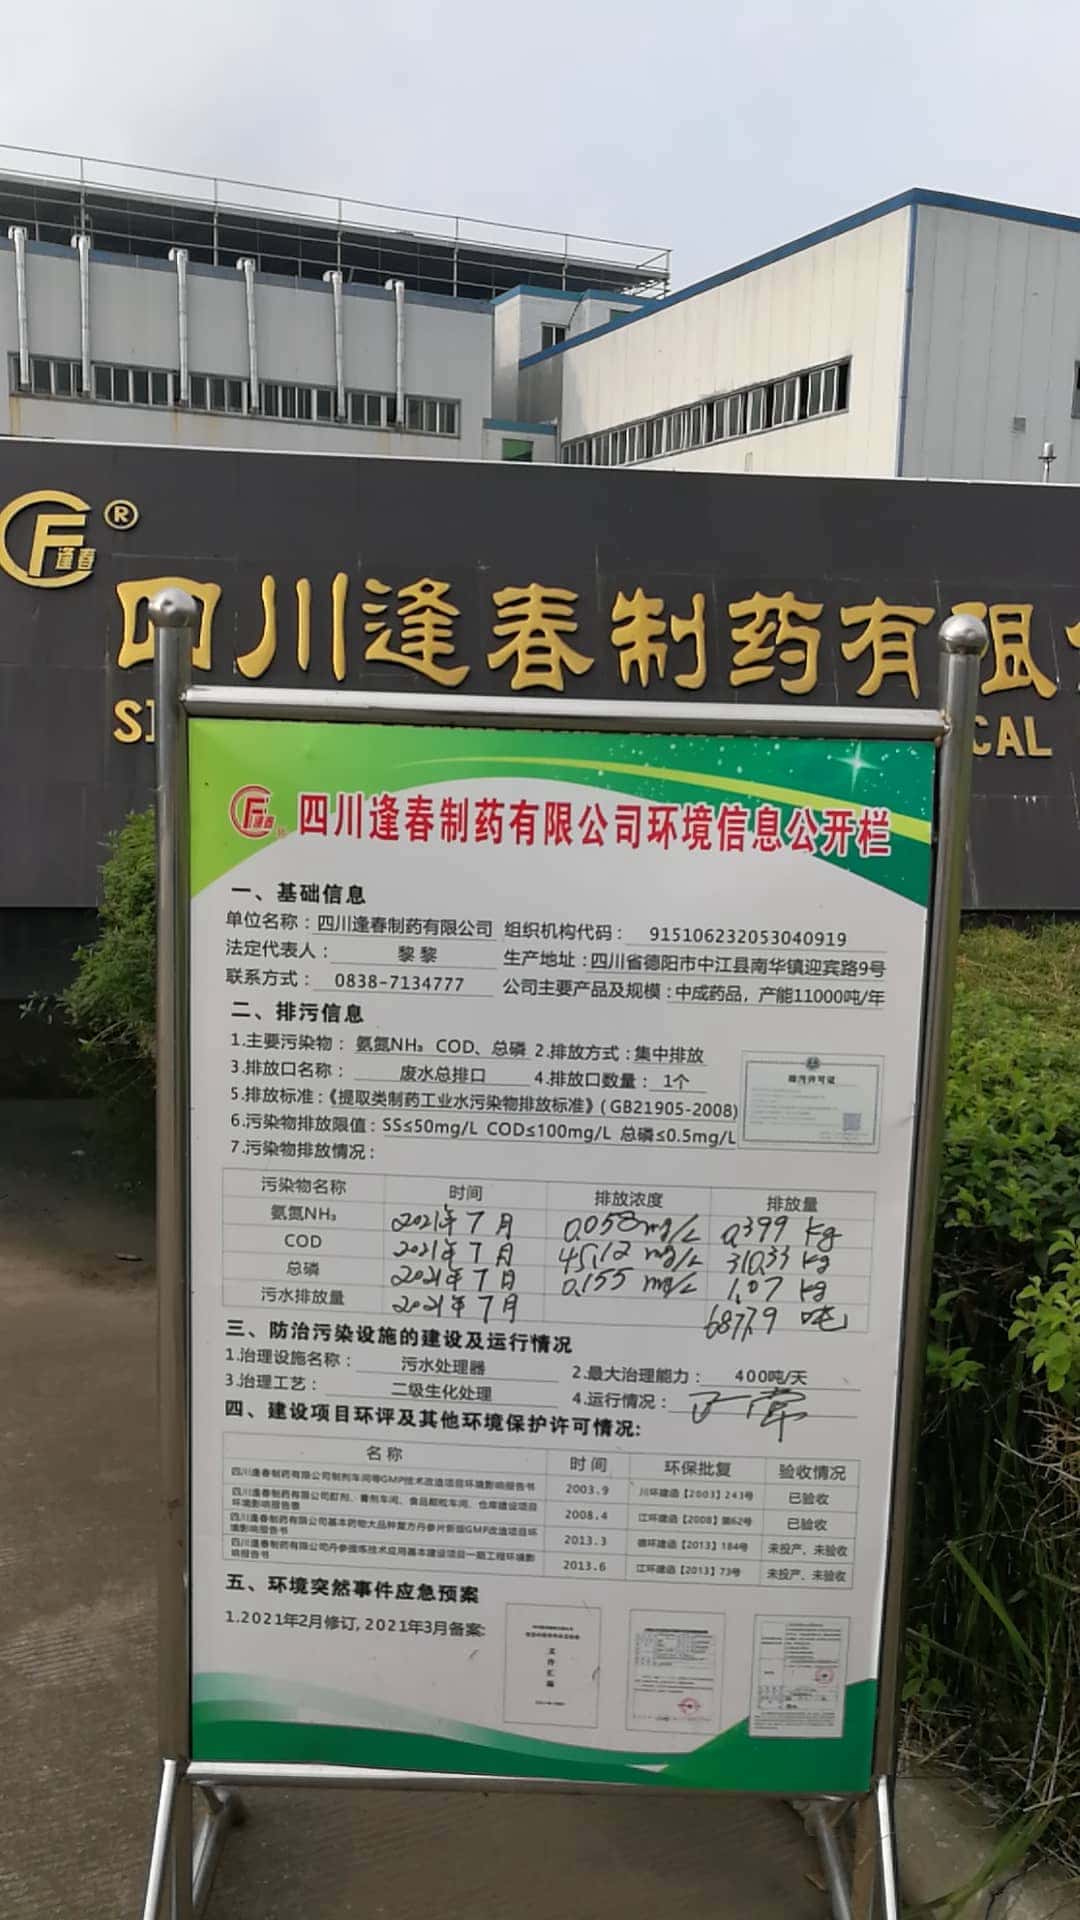 逢春 ®
四川逢春制药有限
CAL
四川逢春制药有限公司环境信息公开栏
一、基础信息
单位名称：四川逢春制药有限公司 组织机构代码： 915106232053040919
法定代表人： 黎黎 生产地址：四川省德阳市中江县南华镇迎宾路9号
联系方式： 0838-7134777 公司主要产品及规模：中成药品，产能11000吨/年
二、排污信息
1.主要污染物： 氨氮NH₃ COD、总磷 2.排放方式：集中排放
3.排放口名称： 废水总排口 4.排放口数量： 1个
5.排放标准：《提取类制药工业水污染物排放标准》( GB21905-2008)
6.污染物排放限值：SS≤50mg/L COD≤100mg/L 总磷≤0.5mg/L
7.污染物排放情况：
排污许可证
污染物名称 时间 排放浓度 排放量
氨氮NH₃ 2021年7月 0.058mg/L 0.399 kg
COD 2021年7月 45.12 mg/L 310.33 kg
总磷 2021年7月 0.155 mg/L 1.07 kg
污水排放量 2021年7月 6877.9 吨
三、防治污染设施的建设及运行情况
1.治理设施名称： 污水处理器 2.最大治理能力： 400吨/天
3.治理工艺： 二级生化处理 4.运行情况： 正常
四、建设项目环评及其他环境保护许可情况:
名 称 时 间 环保批复 验收情况
四川逢春制药有限公司制剂车间等GMP技术改造项目环境影响报告书 2003.9 川环建函【2003】243号 已验收
四川逢春制药有限公司酊剂、膏剂车间、食品颗粒车间、仓库建设项目
环境影响报告表 2008.4 江环建函【2008】第62号 已验收
四川逢春制药有限公司基本药物大品种复方丹参片新版GMP改造项目环
境影响报告书 2013.3 德环建函【2013】184号 未投产、未验收
四川逢春制药有限公司丹参提炼技术应用基本建设项目一期工程环境影
响报告书 2013.6 江环建函【2013】73号 未投产、未验收
五、环境突然事件应急预案
1.2021年2月修订, 2021年3月备案:
文
件
汇
编